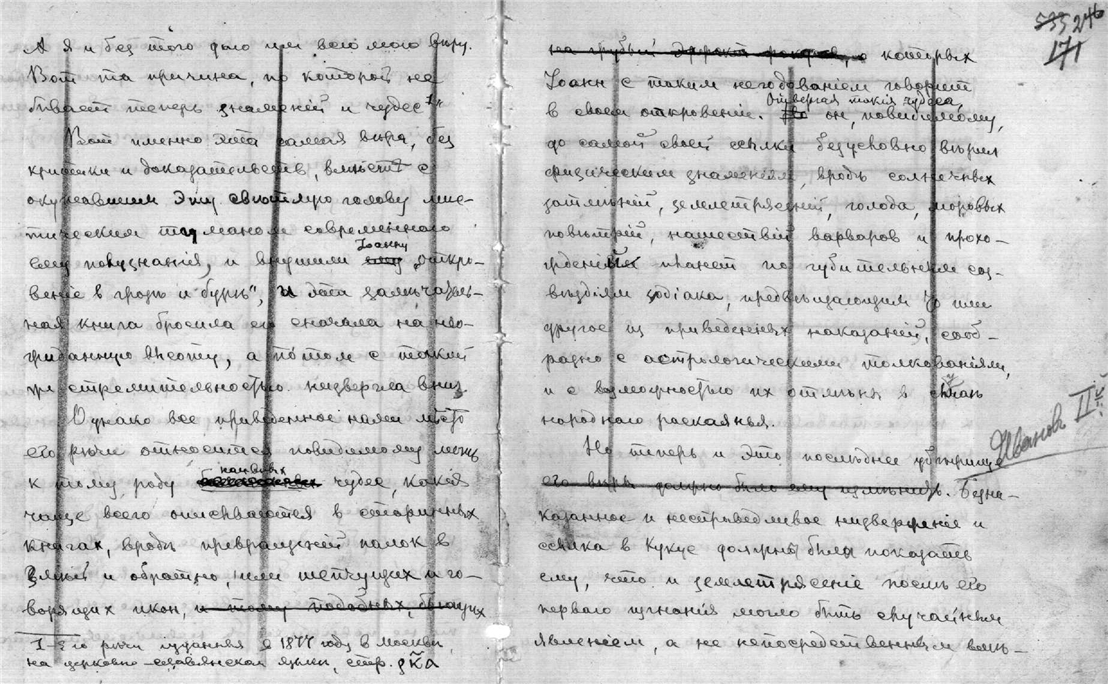 А я и без того дою им всю мою вѣру.
Вот та причина, по которой не
бывает теперь знамений и чудес"¹⁾.
Вот именно эта самая вѣра, без
критики и доказательств, вмѣстѣ с
окутавшим эту свѣтлую голову мис-
тическим туманом современнаго
ему полузнанія, и внушили Іоанну „откро-
веніе в грозѣ и бурѣ", и эта замѣчатель-
ная книга бросила его сначала на нео-
жиданную высоту, а потом с такой
же стремительностью низвергла вниз.
Однако все приведенное нами мѣсто
его рѣчи относится повидимому лишь
к тому роду наивных чудес, какія
чаще всего описываются в старинных
книгах, вродѣ превращеній палок в
змѣй и обратно, или шепчущих и го-
ворящих икон, и тому подобных, бьющих
I – Его рѣчи изданныя в 1877 году в Москвѣ,
на церковно-славянском языкѣ, стр.
535 246
171
на грубый эффект фокусов, о которых
Іоанн с таким негодованіем говорит
в своем откровеніи. Отвергая такія чудеса,
он, повидимому,
до самой своей ссылки безусловно вѣрил
физическим знаменіям, вродѣ солнечных
затмѣній, землетрясеній, голода, моровых
повѣтрій, нашествій варваров и прохо-
жденій планет по губительным соз-
вѣздіям зодіака, предвѣщающим то или
другое из приведенных наказаній, сооб-
разно с астрологическими толкованіями,
и с возможностью их отмѣны в случаѣ
народнаго раскаянья.
Но теперь и это послѣднее убѣжище
его вѣры должно было ему измѣнить. Безна-
казанное и несправедливое низверженіе и
ссылка в Кукус должны были показать
ему, что и землетрясеніе послѣ его
перваго изгнанія могло быть случайным
явленіем, а не непосредственным вмѣ-
Иванов II